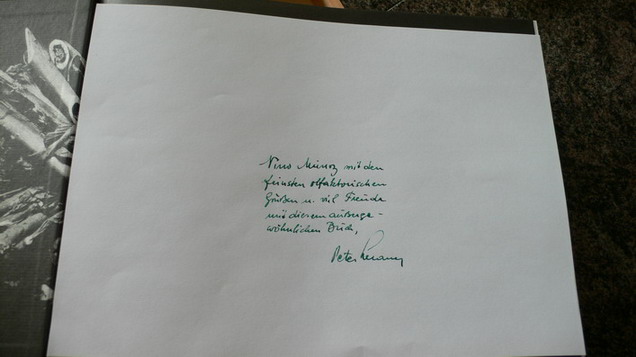 Nino Munoz mit den
feinsten olfaktorischen
Grüßen u. viel Freude
mit diesem außerge-
wöhnlichen Buch,
Peter